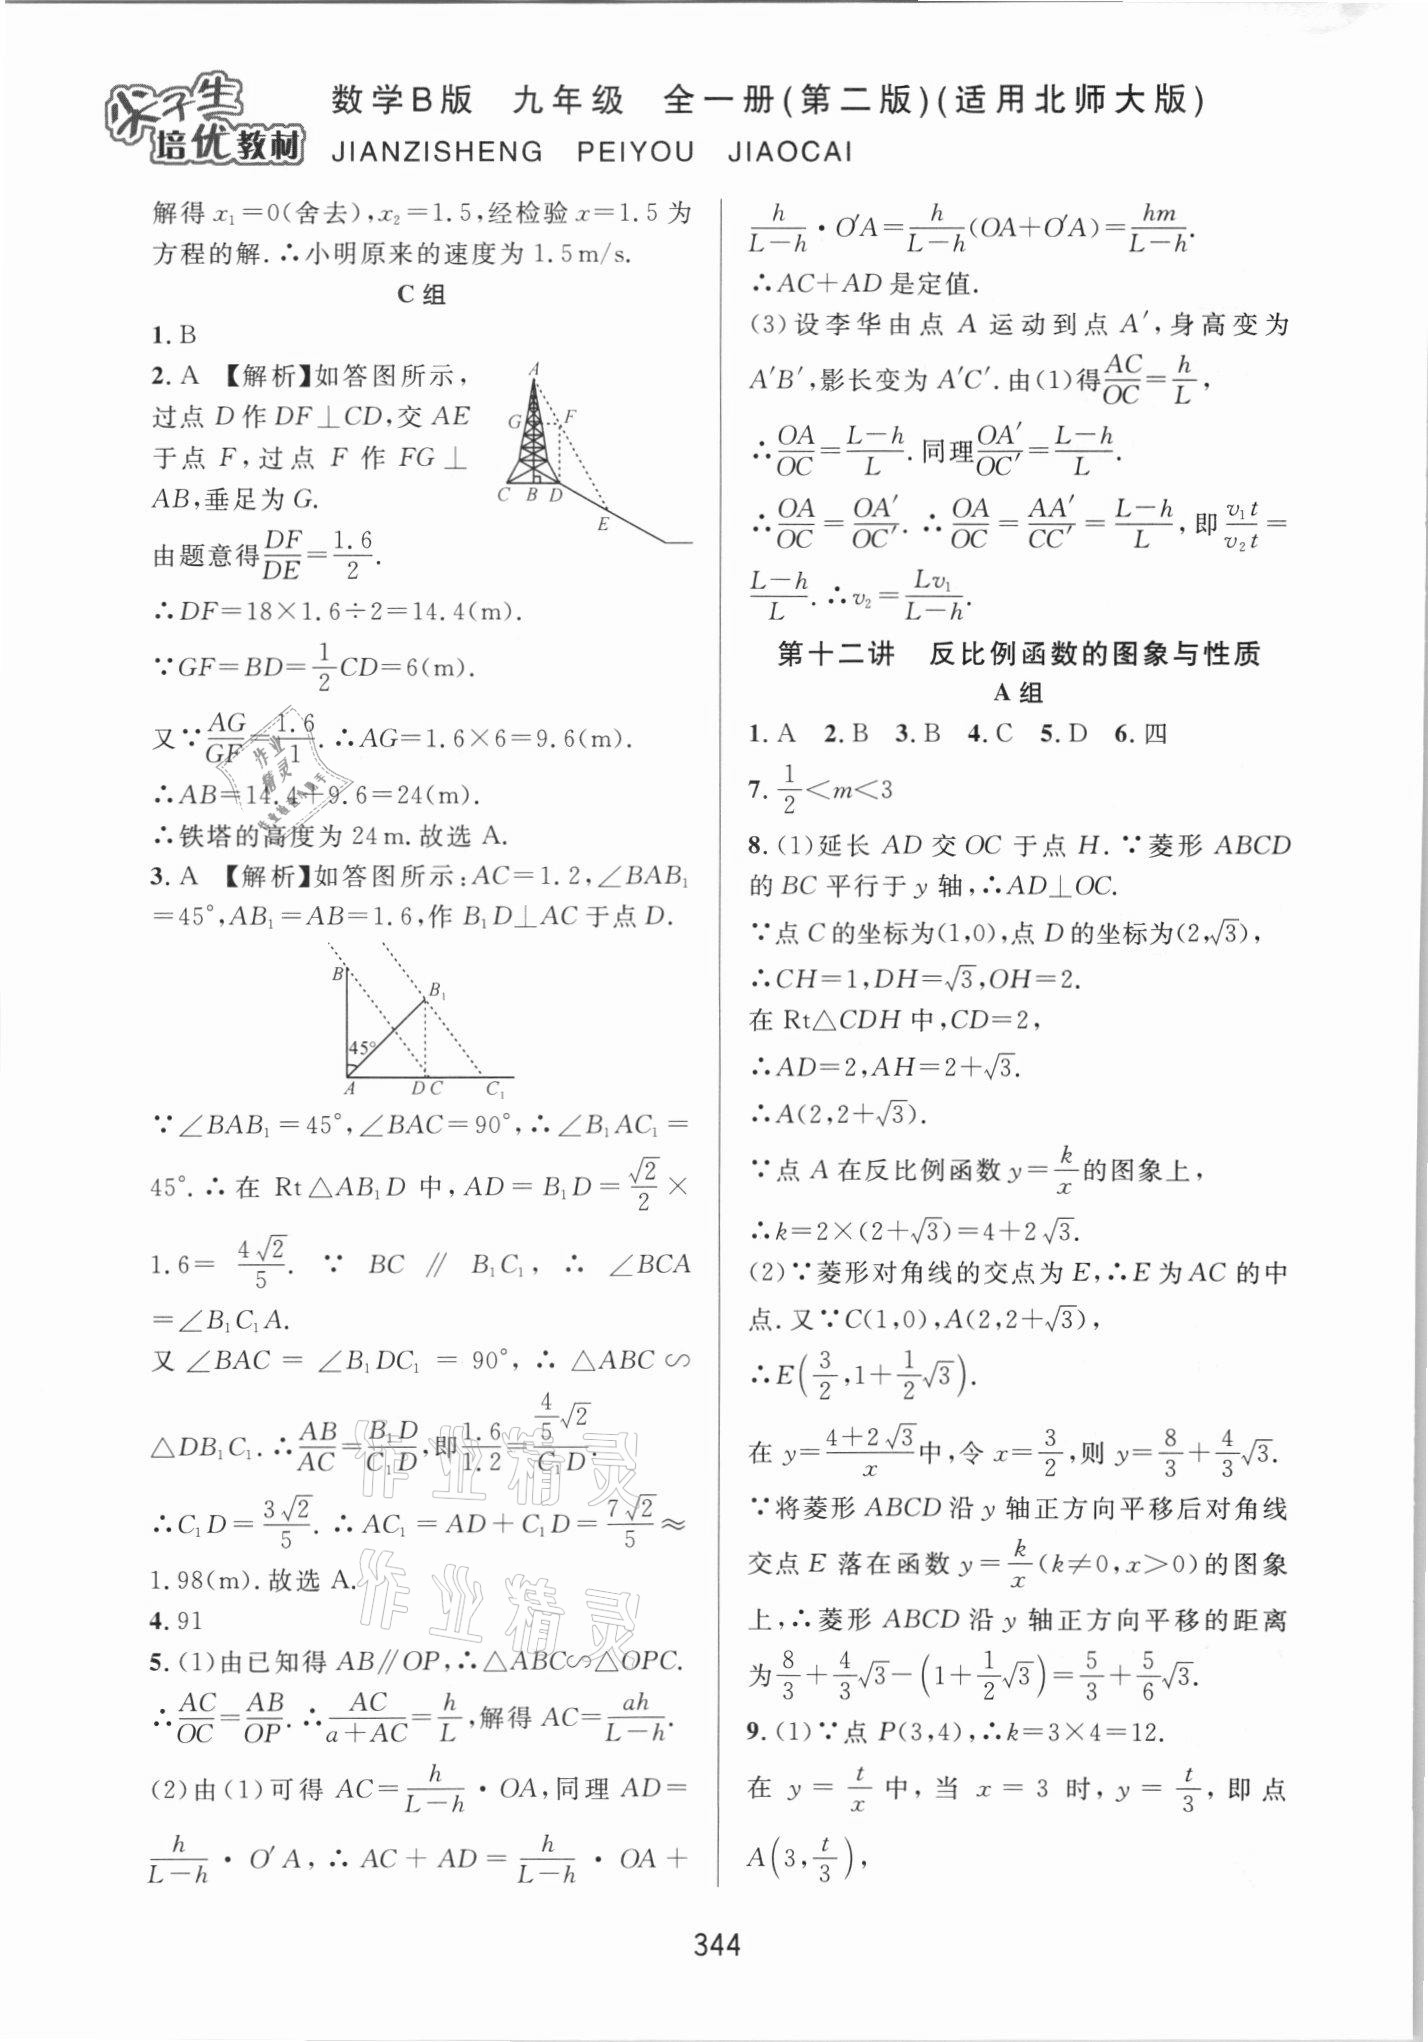 尖子生
培优教材
数学B版 九年级 全一册(第二版)(适用北师大版)
JIANZISHENG PEIYOU JIAOCAI
解得 x₁=0(舍去),x₂=1.5,经检验 x=1.5 为
方程的解.∴小明原来的速度为 1.5 m/s.
C 组
1. B
2. A 【解析】如答图所示,
过点 D 作 DF⊥CD,交 AE
于点 F,过点 F 作 FG⊥
AB,垂足为 G.
A
G F
C B D
E
由题意得 DF/DE=1.6/2.
∴DF=18×1.6÷2=14.4(m).
∵GF=BD=1/2 CD=6(m).
又∵AG/GF=1.6/1.∴AG=1.6×6=9.6(m).
∴AB=14.4+9.6=24(m).
∴铁塔的高度为 24 m.故选 A.
3. A 【解析】如答图所示:AC=1.2,∠BAB₁
=45°,AB₁=AB=1.6,作 B₁D⊥AC 于点 D.
B
B₁
45°
A D C C₁
∵∠BAB₁=45°,∠BAC=90°,∴∠B₁AC₁=
45°.∴在 Rt△AB₁D 中,AD=B₁D=√2/2×
1.6=4√2/5. ∵ BC∥B₁C₁, ∴ ∠BCA
=∠B₁C₁A.
又∠BAC=∠B₁DC₁=90°,∴△ABC∽
△DB₁C₁.∴AB/AC=B₁D/C₁D,即1.6/1.2=(4/5)√2/C₁D.
∴C₁D=3√2/5.∴AC₁=AD+C₁D=7√2/5≈
1.98(m).故选 A.
4. 91
5. (1)由已知得 AB∥OP,∴△ABC∽△OPC.
∴AC/OC=AB/OP.∴AC/(a+AC)=h/L,解得 AC=ah/(L-h).
(2)由(1)可得 AC=h/(L-h)·OA,同理 AD=
h/(L-h)·O′A,∴AC+AD=h/(L-h)·OA+
h/(L-h)·O′A=h/(L-h)(OA+O′A)=hm/(L-h).
∴AC+AD 是定值.
(3)设李华由点 A 运动到点 A′,身高变为
A′B′,影长变为 A′C′.由(1)得AC/OC=h/L,
∴OA/OC=(L-h)/L.同理OA′/OC′=(L-h)/L.
∴OA/OC=OA′/OC′.∴OA/OC=AA′/CC′=(L-h)/L,即v₁t/v₂t=
(L-h)/L.∴v₂=Lv₁/(L-h).
第十二讲 反比例函数的图象与性质
A 组
1. A 2. B 3. B 4. C 5. D 6. 四
7. 1/2<m<3
8. (1)延长 AD 交 OC 于点 H.∵菱形 ABCD
的 BC 平行于 y 轴,∴AD⊥OC.
∵点 C 的坐标为(1,0),点 D 的坐标为(2,√3),
∴CH=1,DH=√3,OH=2.
在 Rt△CDH 中,CD=2,
∴AD=2,AH=2+√3.
∴A(2,2+√3).
∵点 A 在反比例函数 y=k/x的图象上,
∴k=2×(2+√3)=4+2√3.
(2)∵菱形对角线的交点为 E,∴E 为 AC 的中
点.又∵C(1,0),A(2,2+√3),
∴E(3/2,1+1/2√3).
在 y=(4+2√3)/x中,令 x=3/2,则 y=8/3+4/3√3.
∵将菱形 ABCD 沿 y 轴正方向平移后对角线
交点 E 落在函数 y=k/x(k≠0,x>0)的图象
上,∴菱形 ABCD 沿 y 轴正方向平移的距离
为8/3+4/3√3-(1+1/2√3)=5/3+5/6√3.
9. (1)∵点 P(3,4),∴k=3×4=12.
在 y=t/x中,当 x=3 时,y=t/3,即点
A(3,t/3),
344
作业精灵
作业精灵
作业精灵